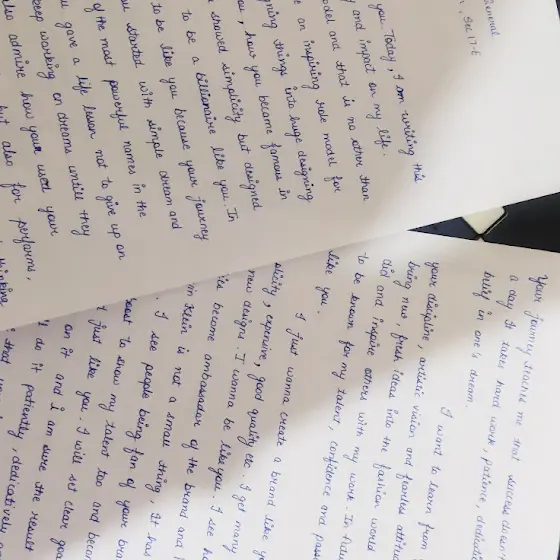 , Sec 17-E
you. Today, I am writing this
and impact on my life.
odel and that is no other than
e an inspiring role model for
gning things into huge designing
ou, how you became famous in
r showed simplicity but designed
to be a billionaire like you. In
to be like you because your journey
ou started with simple dream and
of the most powerful names in the
u gave a life lesson not to give up on
keep working on dreams untill they
also admire how your used your
but also for performs,
thinking
Your journey teaches me that success doesn't
a day it takes hard work, patience, dedicat
busy in one's dream.
I want to learn from
your discipline, artistic vision and fearless attitu
being new, fresh ideas into the fashion world
did and inspire others with my work. In futu
to be known for my talent, confidence and pass
like you.
I just wanna create a brand like y
plicity, expensive, good quality etc. I get many
new designs. I wanna be like you. I see
become ambassador of the brand and
in Klein is not a small thing, it has
. I see people being fan of your bra
want to show my talent too and becom
just like you. I will set clear goa
on it and i am sure the result
'll do it patiently, dedicatively
that